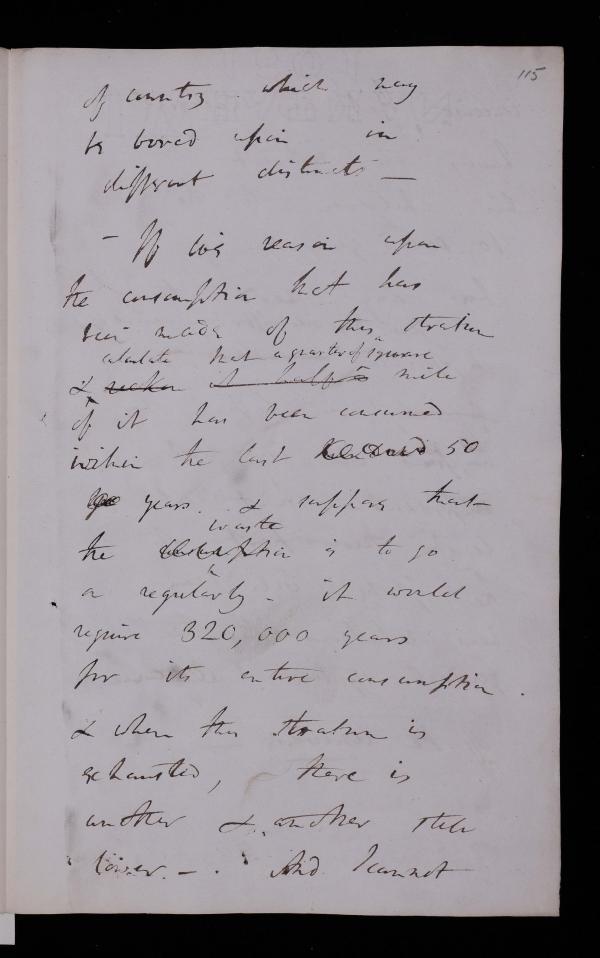 115
of country which may
be bored upon in
different districts —
— If we reason upon
the consumption that has
been made of this stratum
calculate that a quarter of a square
& reckon that half a mile
of it has been consumed
within the last hundred 50
years. & suppose that
waste
the consumption is to go
on regularly - it would
require 320,000 years
for its entire consumption.
& when this stratum is
exhausted, there is
another & another still
lower. — . And I cannot